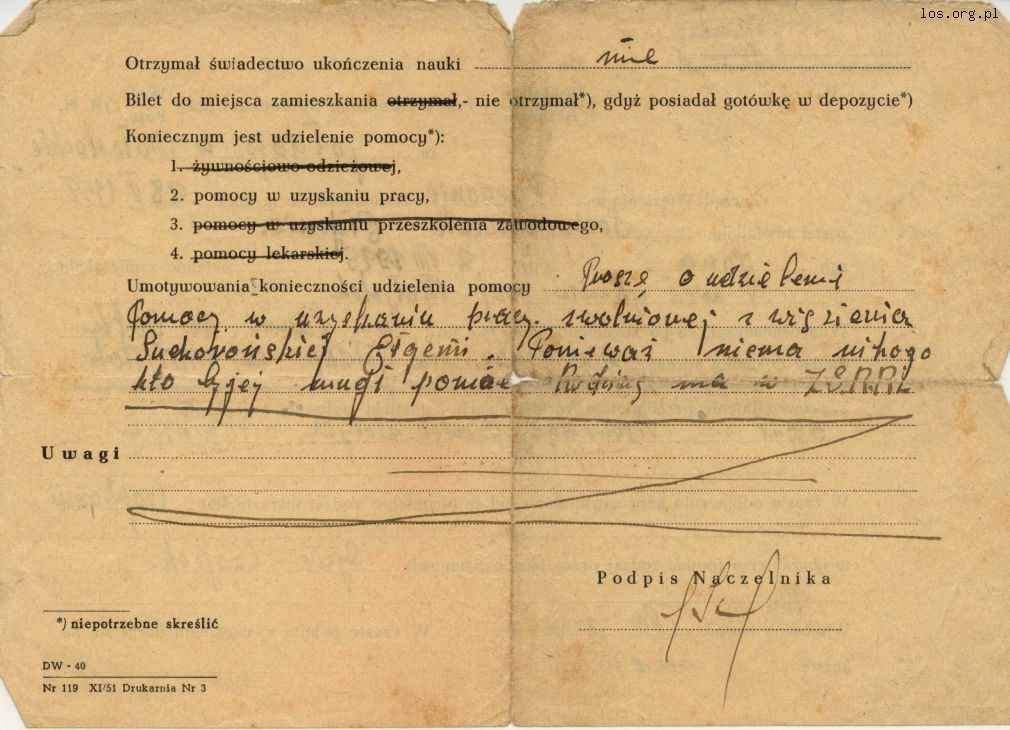 los.org.pl
Otrzymał świadectwo ukończenia nauki nie
Bilet do miejsca zamieszkania otrzymał,- nie otrzymał*), gdyż posiadał gotówkę w depozycie*)
Koniecznym jest udzielenie pomocy*):
1. żywnościowo-odzieżowej,
2. pomocy w uzyskaniu pracy,
3. pomocy w uzyskaniu przeszkolenia zawodowego,
4. pomocy lekarskiej.
Umotywowania konieczności udzielenia pomocy Proszę o udzielenie
Pomocy w uzyskaniu pracy zwolnionej z więzienia
Poniewaź niema nikogo
kto by jej mugł pomóc Rodzinę ma w ZSRR
Uwagi
Podpis Naczelnika
*) niepotrzebne skreślić
DW - 40
Nr 119 XI/51 Drukarnia Nr 3